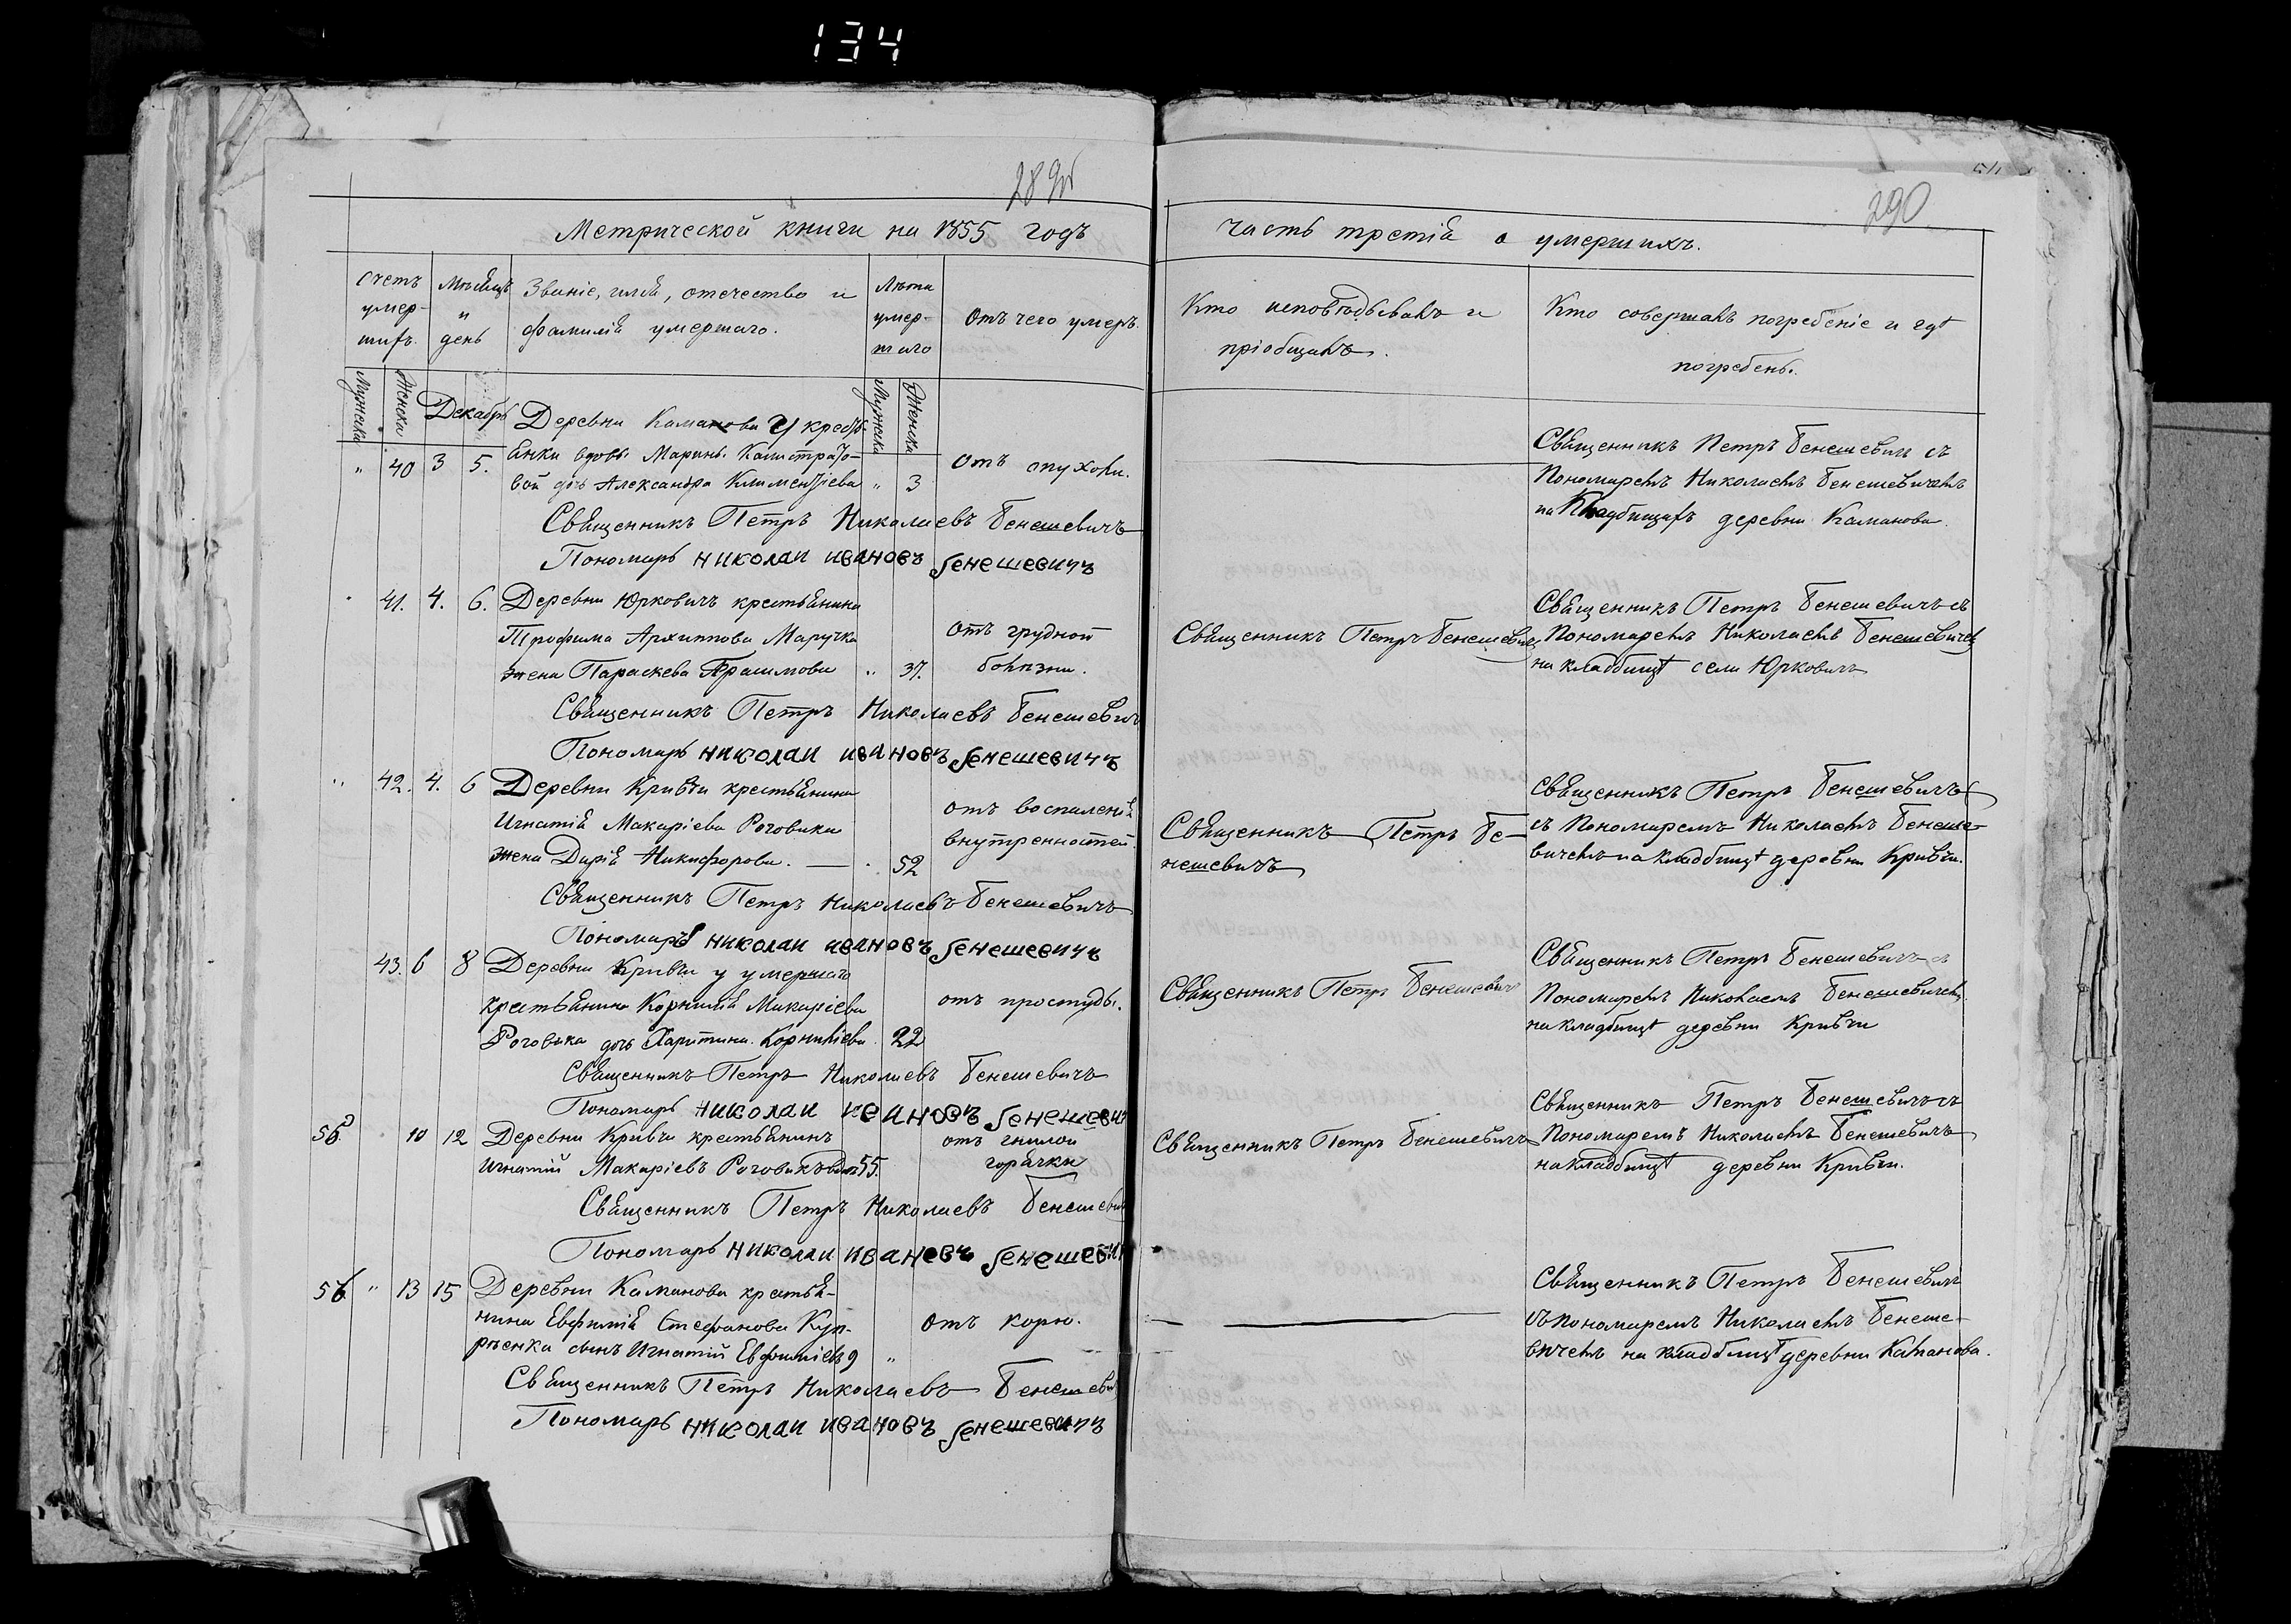 134
289об
290
Метрической книги на 1855 годъ
часть третія о умершихъ.
Счетъ умер-шихъ.
Мѣсяцъ и день
Званіе, имя, отечество и фамилія умершаго.
Лѣта умер-шаго
Отъ чего умеръ.
Кто исповѣдывалъ и пріобщалъ.
Кто совершалъ погребеніе и гдѣ погребены.
Мужска
Женска
Декабрь
Мужска
Женска
" 40 3 5.
Деревни Каманова у кресть-
янки вдовы Марины Калистрато-
вой дочь Александра Климентіева " 3
отъ опухоли.
Священникъ Петръ Бенешевичъ съ
Пономаремъ Николаемъ Бенешевичемъ
на Кладбищахъ деревни Каманова.
Священникъ Петръ Николаевъ Бенешевичъ
Пономарь николаи ивановъ бенешевичъ
41. 4. 6.
Деревни Юрковичъ крестьянина
Трофима Архиппова Маручка
жена Параскева " 37.
отъ грудной
болѣзни.
Священникъ Петръ Бенешевичъ
Священникъ Петръ Бенешевичъ съ
Пономаремъ Николаемъ Бенешевичемъ
на кладбищѣ села Юрковичъ
Священникъ Петръ Николаевъ Бенешевичъ
Пономарь николаи ивановъ бенешевичъ
" 42. 4. 6
Деревни Кривчи крестьянина
Игнатія Макаріева Роговика
жена Дарія Никифорова. — 52
отъ воспаленія
внутренностей.
Священникъ Петръ Бе-
нешевичъ
Священникъ Петръ Бенешевичъ
съ Пономаремъ Николаемъ Бенеше-
вичемъ на кладбищѣ деревни Кривчи.
Священникъ Петръ Николаевъ Бенешевичъ
Пономарь николаи ивановъ бенешевичъ
43. 6 8
Деревни Кривчи у умершаго
крестьянина Корнилія Макаріева
Роговика дочь Харитина Корниліева 22
отъ простуды.
Священникъ Петръ Бенешевичъ
Священникъ Петръ Бенешевичъ съ
Пономаремъ Николаемъ Бенешевичемъ
на кладбищѣ деревни Кривчи
Священникъ Петръ Николаевъ Бенешевичъ
Пономарь николаи ивановъ бенешевич
10 12
Деревни Кривчи крестьянинъ
Игнатій Макаріевъ Роговикъ 55.
отъ гнилой
горячки
Священникъ Петръ Бенешевичъ
Священникъ Петръ Бенешевичъ съ
Пономаремъ Николаемъ Бенешевичъ
на кладбищѣ деревни Кривчи.
Священникъ Петръ Николаевъ Бенешевич
Пономарь николаи ивановъ бенешевич
56 " 13 15
Деревни Каманова крестья-
нина Евфимія Стефанова Куп-
рѣенка сынъ Игнатій Евфиміевъ 9 "
отъ корю.
Священникъ Петръ Бенешевичъ
съ пономаремъ Николаемъ Бенеше-
вичемъ на кладбищѣ деревни Каманова.
Священникъ Петръ Николаевъ Бенешевич
Пономарь николаи ивановъ бенешевичъ